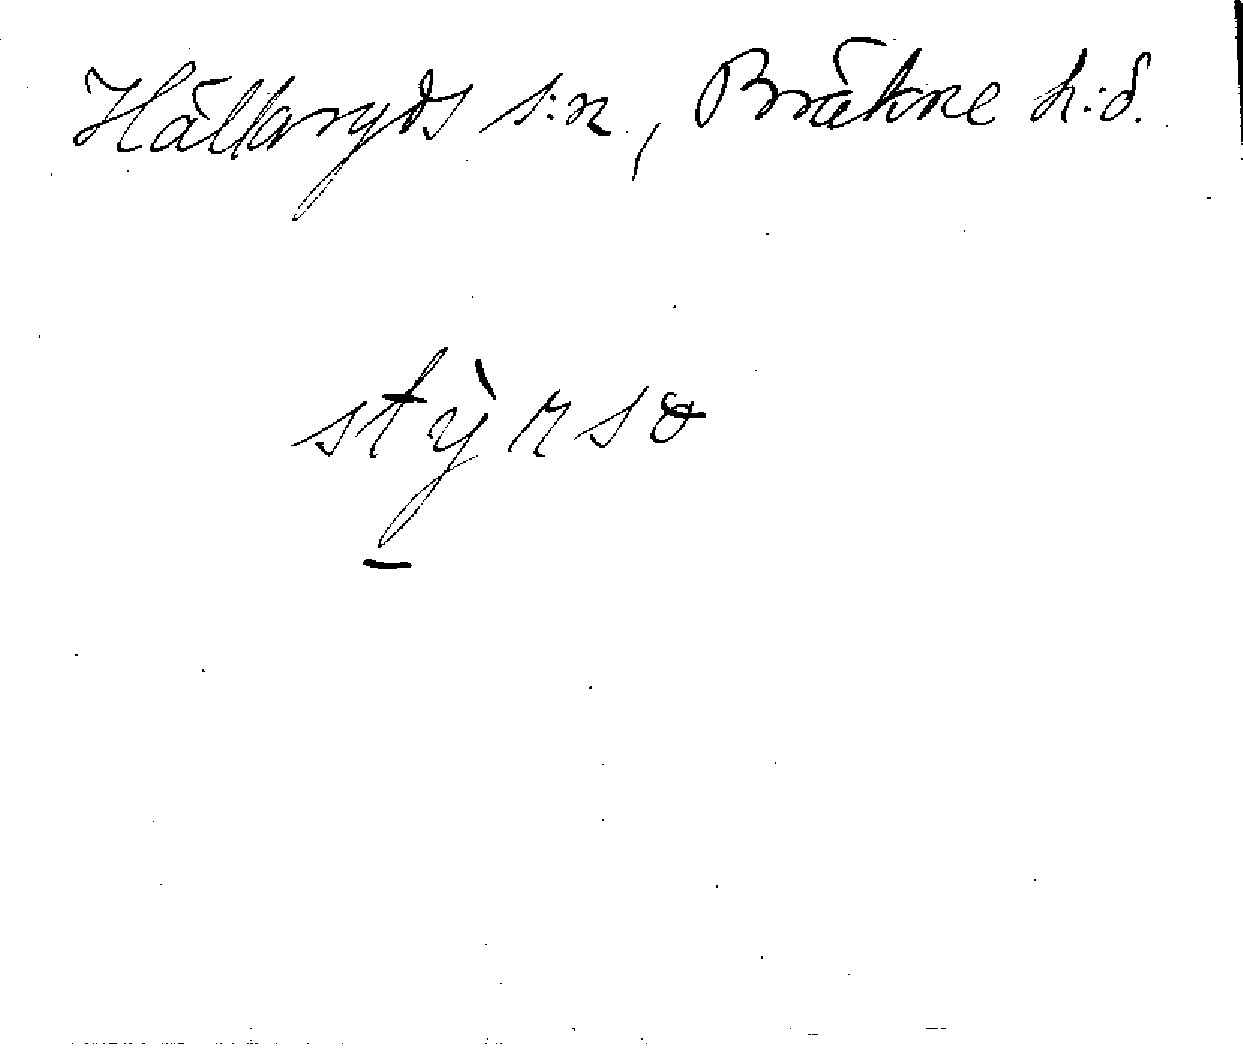 Hällaryds s:n, Bräkne h:d.
stỳrsɞ